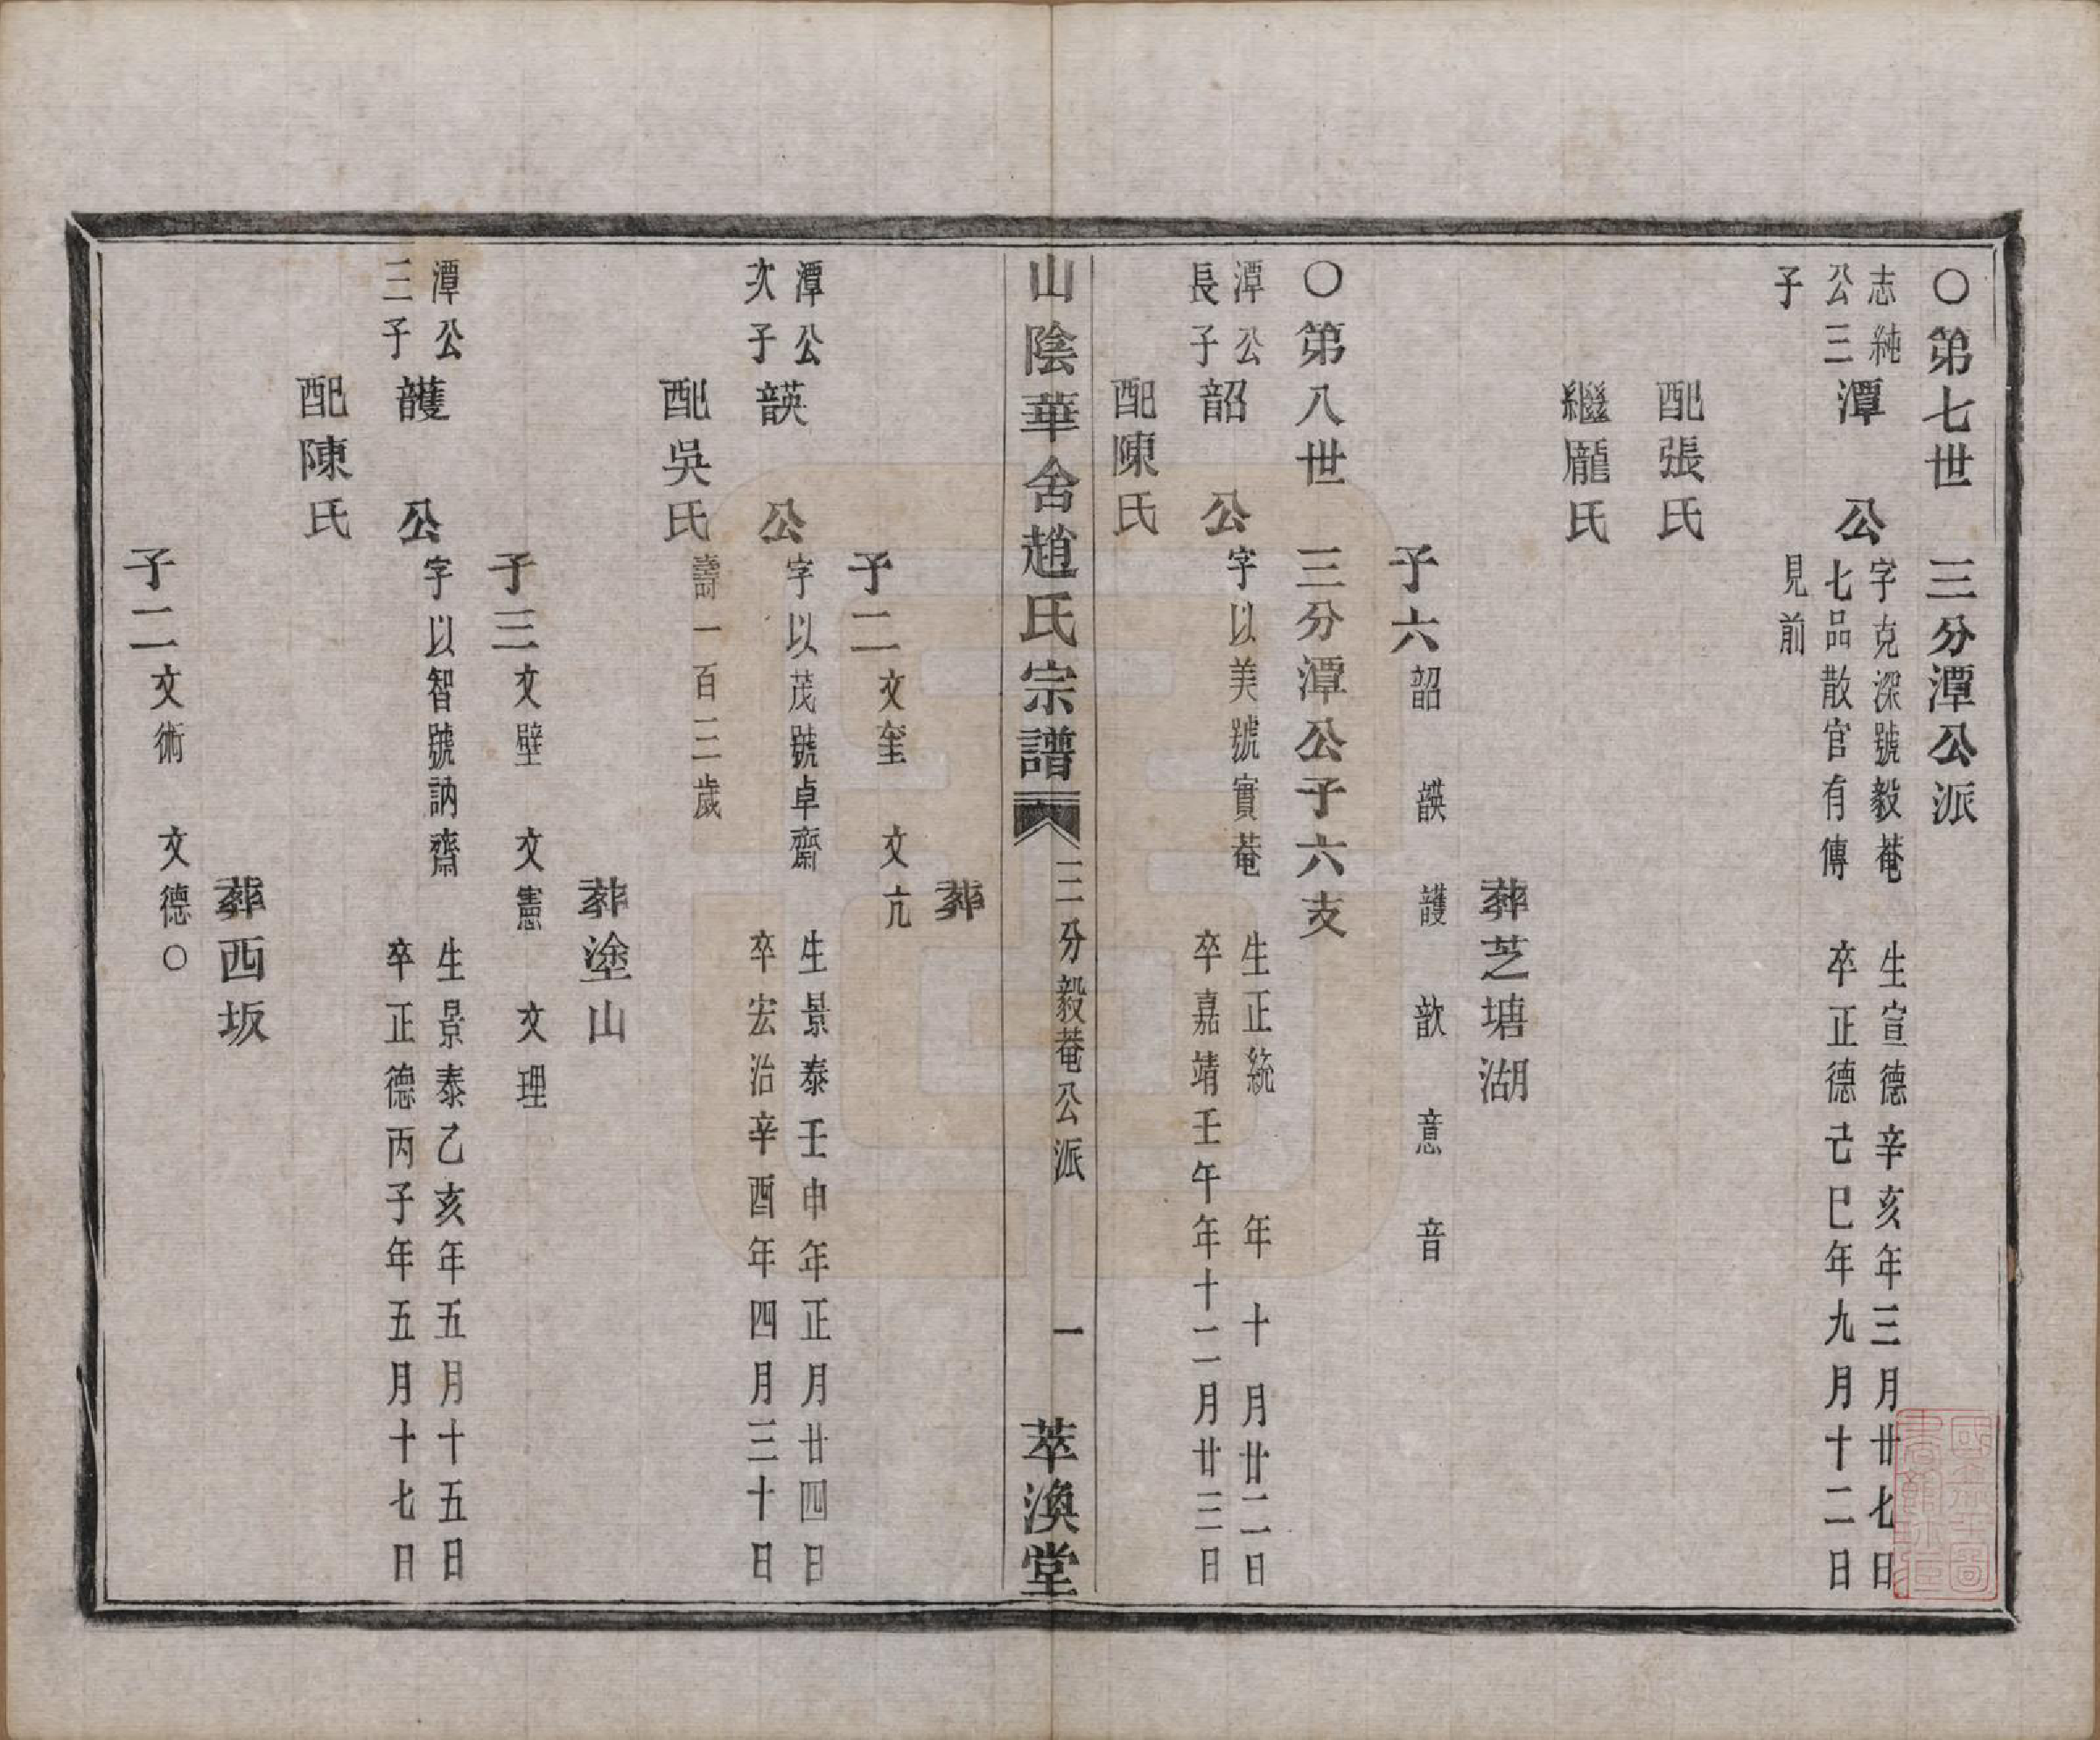 〇第七世　三分潭公派
志純公三子　潭　公　字克深號毅菴七品散官有傳見前　生宣德辛亥年三月廿七日　卒正德己巳年九月十二日
配張氏
繼龎氏
葬芝塘湖
子六　韶　韺　頀　歆　意　音
〇第八世　三分潭公子六支
潭公長子　韶　公　字以美號實菴　生正統　年　十月廿二日　卒嘉靖壬午年十二月廿三日
配陳氏
山陰華舍趙氏宗譜　三分毅菴公派　一　萃渙堂
葬
子二　文奎　文亢
潭公次子　韺　公　字以茂號卓齋　生景泰壬申年正月廿四日　卒宏治辛酉年四月三十日
配吳氏　壽一百三歲
葬塗山
子三　文壁　文憲　文理
潭公三子　頀　公　字以智號訥齋　生景泰乙亥年五月十五日　卒正德丙子年五月十七日
配陳氏
葬西坂
子二　文術　文德〇